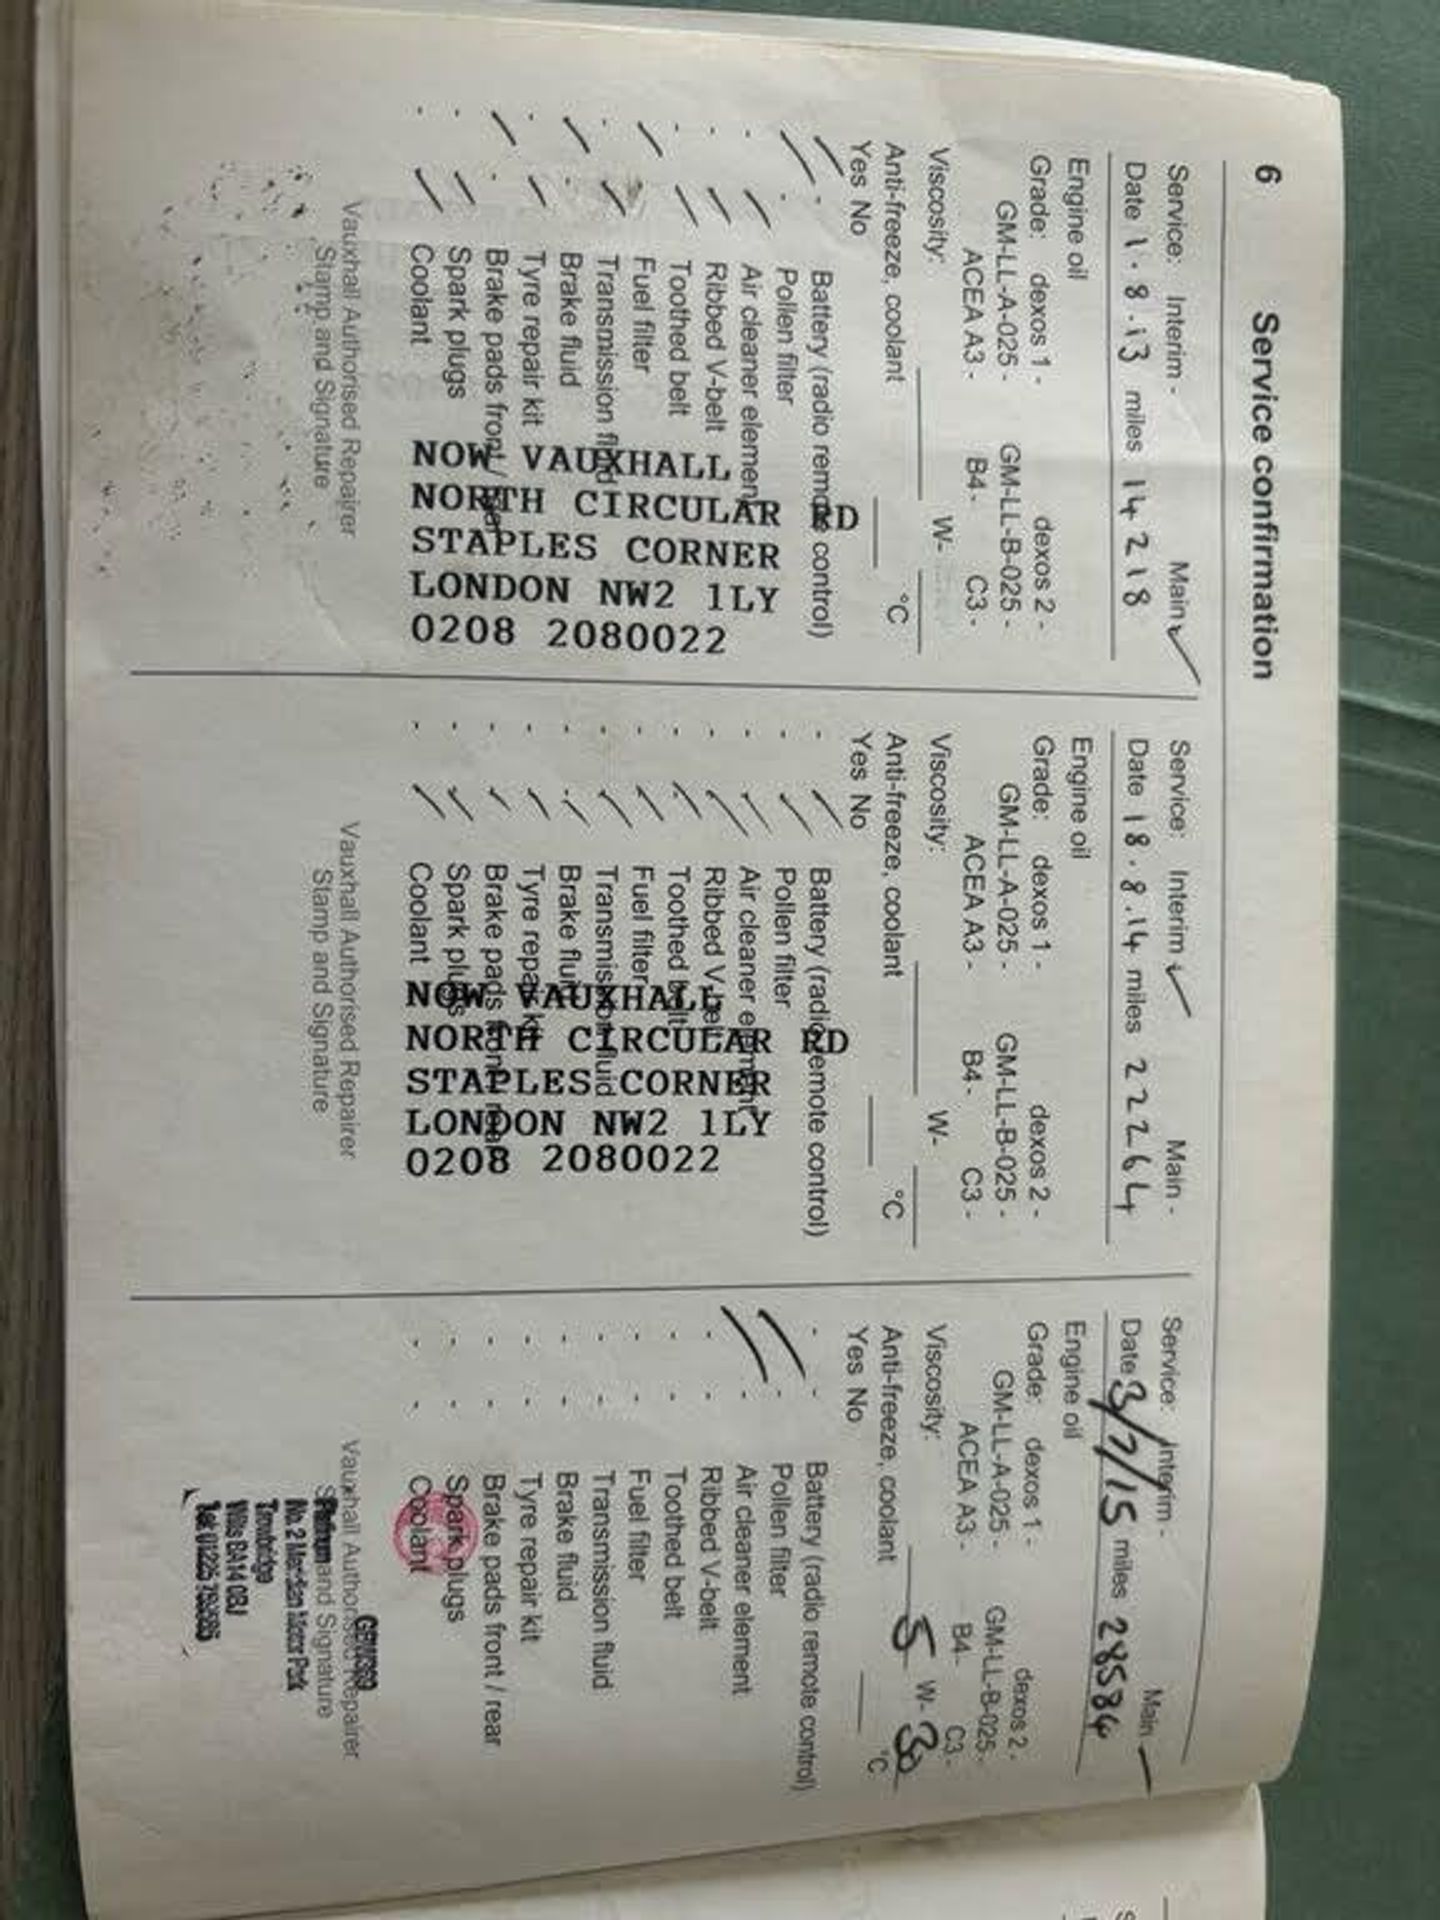 6 Service confirmation
Service: Interim - Main ✓
Date 1.8.13 miles 14218
Engine oil
Grade: dexos 1 - dexos 2 -
GM-LL-A-025 - GM-LL-B-025 -
ACEA A3 - B4 - C3 -
Viscosity: W-
Anti-freeze, coolant °C
Yes No
Battery (radio remote control)
Pollen filter
Air cleaner element
Ribbed V-belt
Toothed belt
Fuel filter
Transmission fluid
Brake fluid
Tyre repair kit
Brake pads front / rear
Spark plugs
Coolant
NOW VAUXHALL
NORTH CIRCULAR RD
STAPLES CORNER
LONDON NW2 1LY
0208 2080022
Vauxhall Authorised Repairer
Stamp and Signature
Service: Interim ✓ Main -
Date 18.8.14 miles 22264
Engine oil
Grade: dexos 1 - dexos 2 -
GM-LL-A-025 - GM-LL-B-025 -
ACEA A3 - B4 - C3 -
Viscosity: W-
Anti-freeze, coolant °C
Yes No
Battery (radio remote control)
Pollen filter
Air cleaner element
Ribbed V-belt
Toothed belt
Fuel filter
Transmission fluid
Brake fluid
Tyre repair kit
Brake pads front / rear
Spark plugs
Coolant
NOW VAUXHALL
NORTH CIRCULAR RD
STAPLES CORNER
LONDON NW2 1LY
0208 2080022
Vauxhall Authorised Repairer
Stamp and Signature
Service: Interim - Main
Date 3/7/15 miles 28584
Engine oil
Grade: dexos 1 - dexos 2 -
GM-LL-A-025 - GM-LL-B-025 -
ACEA A3 - B4 - C3 -
Viscosity: 5 W- 30
Anti-freeze, coolant °C
Yes No
Battery (radio remote control)
Pollen filter
Air cleaner element
Ribbed V-belt
Toothed belt
Fuel filter
Transmission fluid
Brake fluid
Tyre repair kit
Brake pads front / rear
Spark plugs
Coolant
Vauxhall Authorised Repairer
Stamp and Signature
Platinum
No. 2 Meridian Motor Park
Trowbridge
Wilts BA14 0BJ